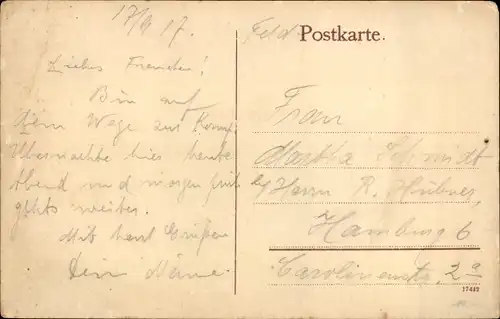 17/9 17.
Feld Postkarte.
Liebes Frauchen!
Bin auf
dem Wege zur Komp.
Übernachte hier heute
Abend und morgen früh
gehts weiter.
Mit herzl Grüßen
Dein Männe.
Frau
Martha Schmidt
b/ Herrn R. Hübner
Hamburg 6
Carolinenstr. 2a
17442